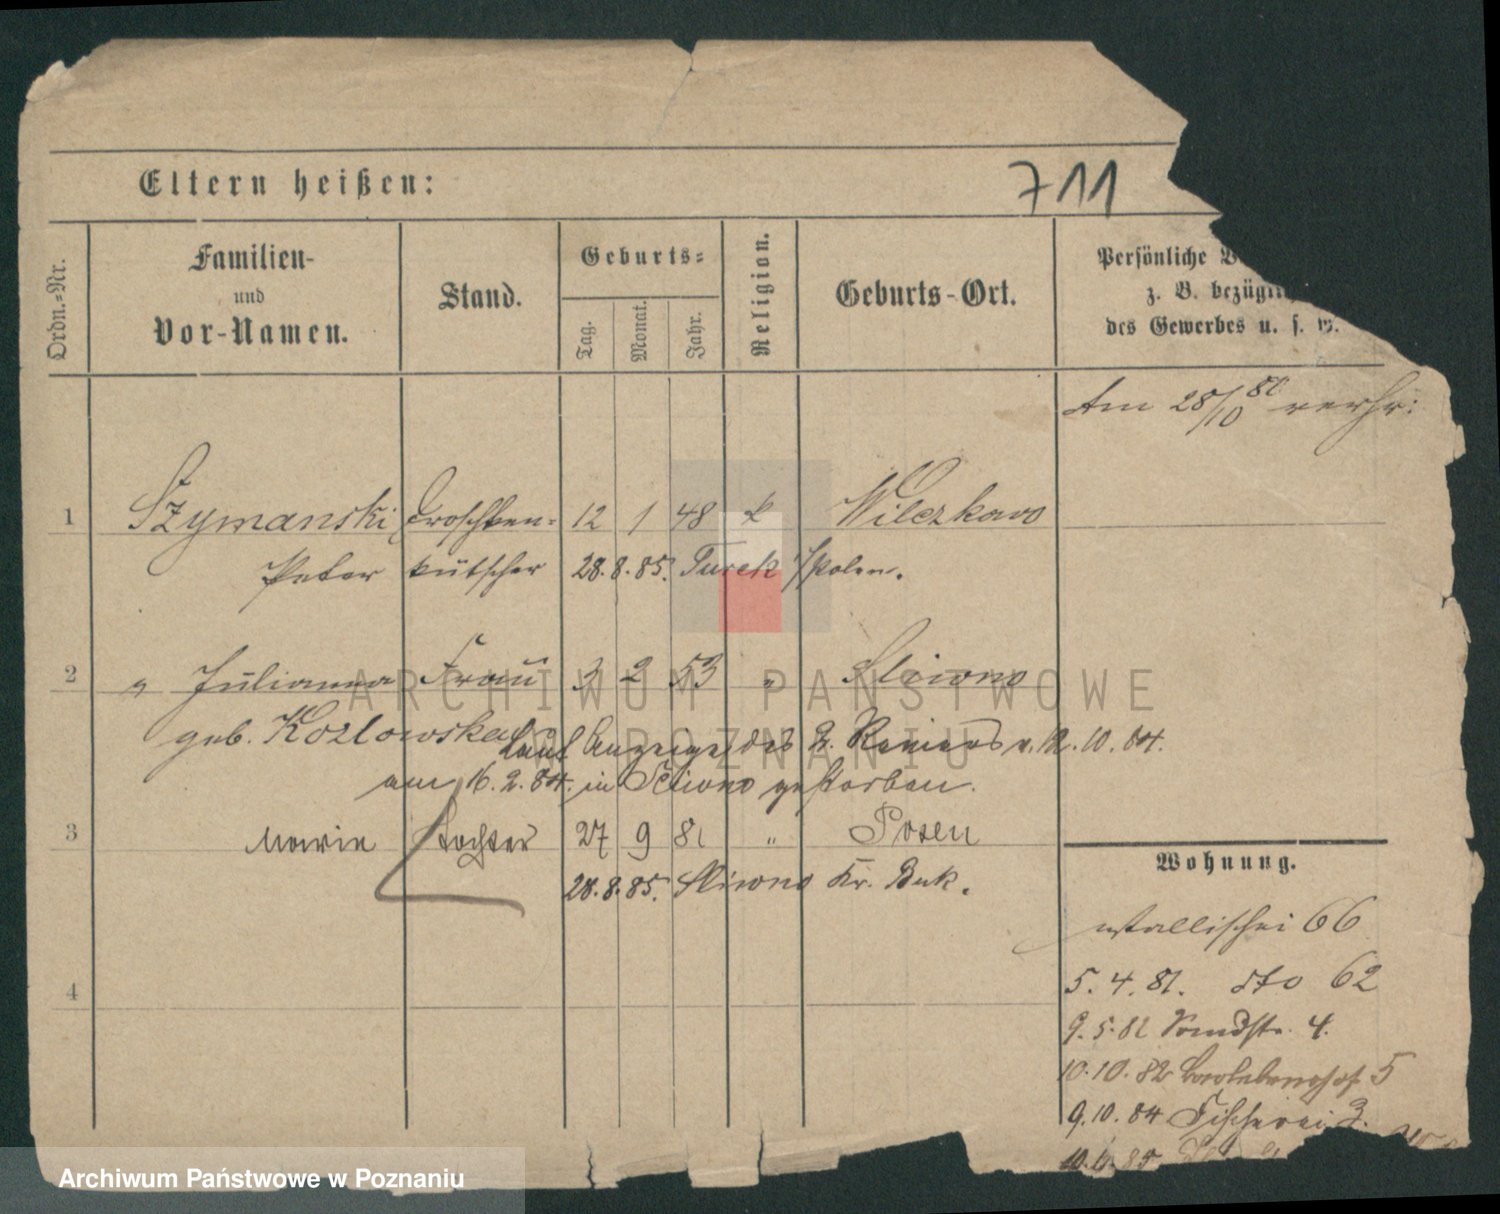 Eltern heißen:
711
Ordn.-Nr.
Familien-
und
Vor-Namen.
Stand.
Geburts-
Tag.
Monat.
Jahr.
Religion.
Geburts-Ort.
Persönliche
z. B. bezügli
des Gewerbes u. s. w.
Am 28/10 80 verhr:
1 Szymanski Droschken- 12 1 48 k Wilczkowo
Peter kutscher 28.8.85. Turek /Polen.
2 " Julianna Frau 3 2 53 " Sliwno
geb. Kozlowska Laut Anzeige des v. 12.10.84.
am 16.2.84. in Sliwno gestorben.
3 Marie Tochter 27 9 81 " Posen
28.8.85. Sliwno Kr. Buk.
4
Wohnung.
Wallischei 66
5.4.81. dto 62
9.5.82 4.
10.10.82 5
9.10.84 Fischerei 3.
85
ARCHIWUM PAŃSTWOWE
W POZNANIU
Archiwum Państwowe w Poznaniu